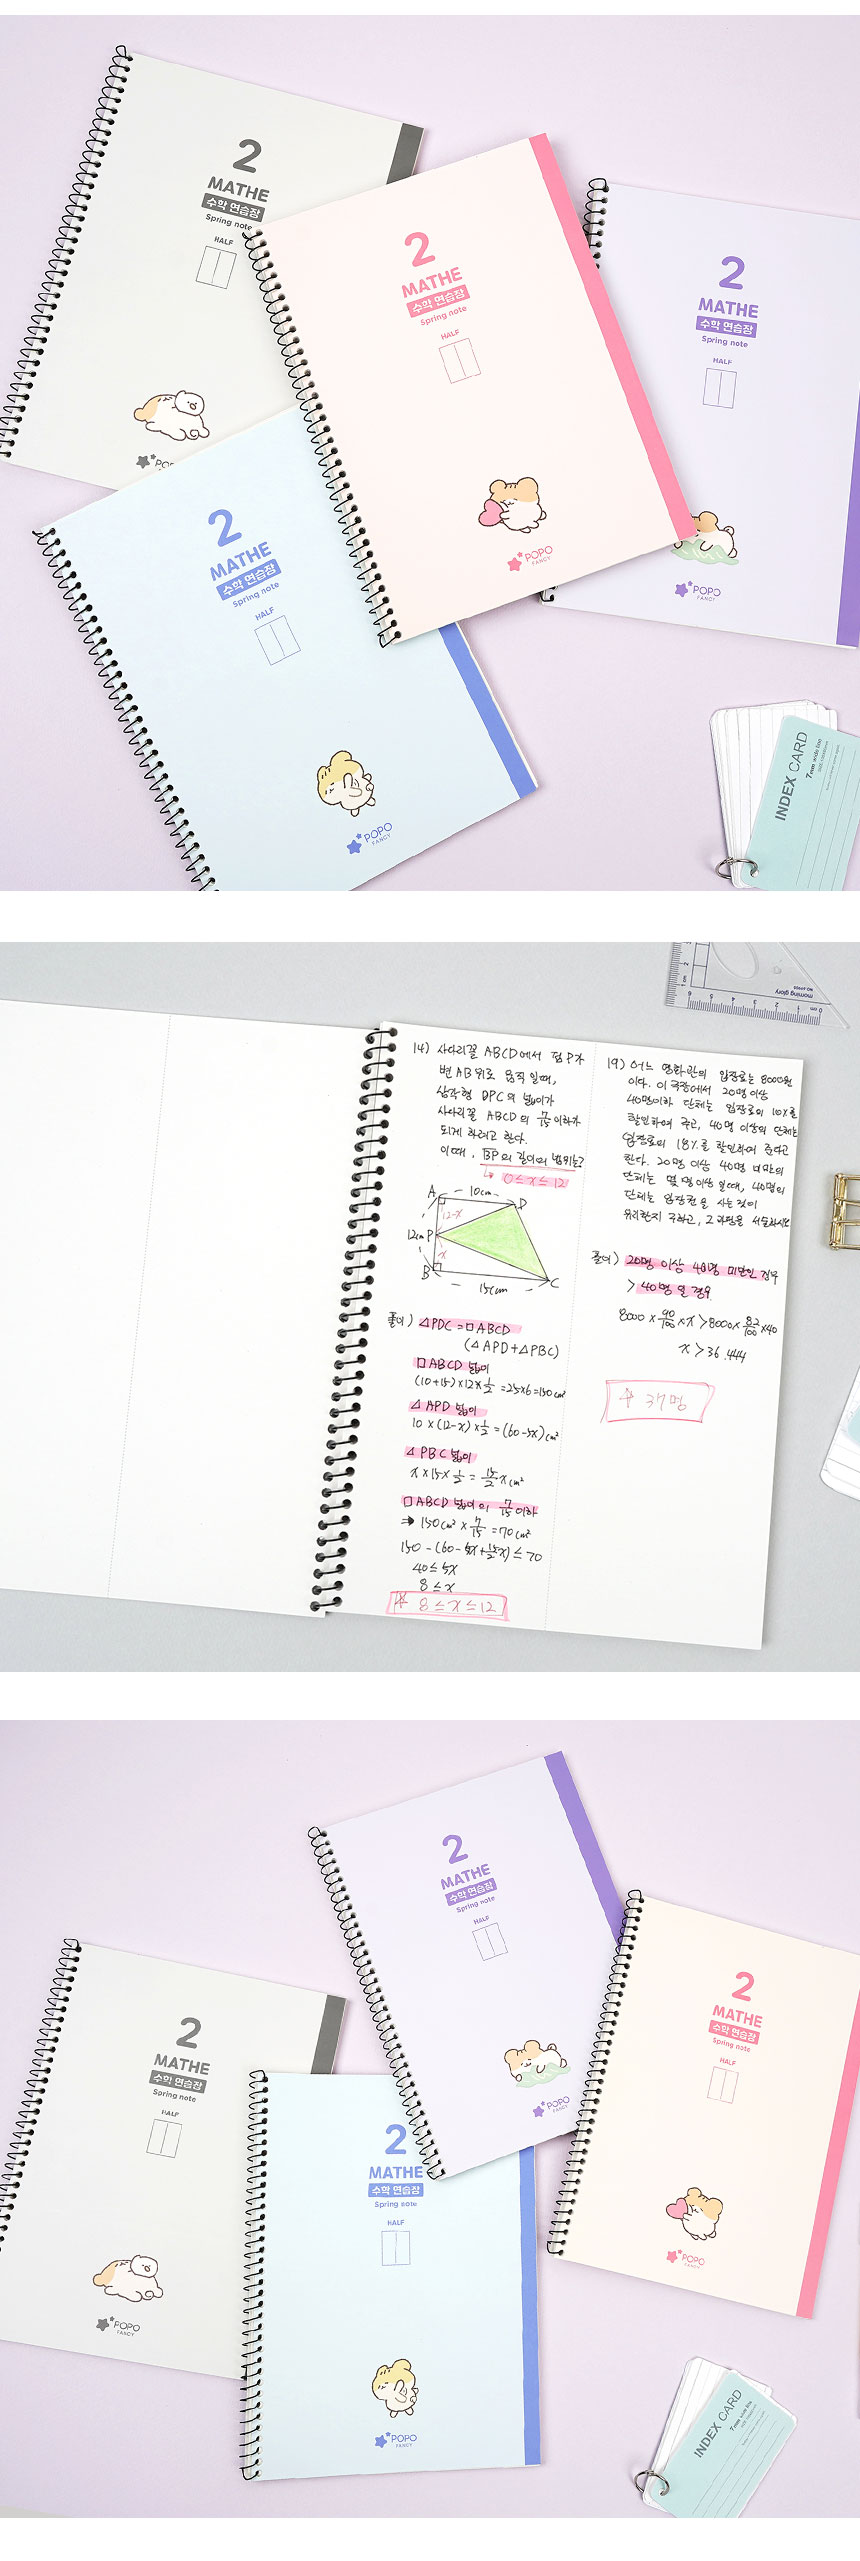 2
MATHE
수학 연습장
Spring note
HALF
2
MATHE
수학 연습장
Spring note
HALF
POPO
FANCY
2
MATHE
수학 연습장
Spring note
HALF
POPO
FANCY
2
MATHE
수학 연습장
Spring note
HALF
POPO
FANCY
INDEX CARD
7mm wide line
morning glory
14) 사다리꼴 ABCD에서 점 P가
변 AB 위로 움직일때,
삼각형 DPC의 넓이가
사다리꼴 ABCD의 7/15 이하가
되게 하려고 한다.
이때, BP의 길이의 범위는?
↳ 0≤x≤12
A 10cm D
12-x
12cm P
x
B 15cm C
풀이) △PDC = □ABCD
(△APD+△PBC)
□ABCD 넓이
(10+15)×12×1/2 = 25×6 = 150cm²
△APD 넓이
10×(12-x)×1/2 = (60-5x)cm²
△PBC 넓이
x×15×1/2 = 15/2 x cm²
□ABCD 넓이의 7/15 이하
➔ 150cm² × 7/15 = 70cm²
150-(60-5x+15/2x)≤70
40≤5x
8≤x
8≤x≤12
19) 어느 영화관의 입장료는 8000원
이다. 이 극장에서 20명 이상
40명이하 단체는 입장료의 10%를
할인하여 주고, 40명 이상의 단체는
입장료의 18%를 할인하여 준다고
한다. 20명 이상 40명 미만의
단체는 몇 명 이상일때, 40명의
단체 입장권을 사는것이
유리한지 구하고, 그 과정을 서술하시오
풀이) 20명 이상 40명 미만인 경우
> 40명일 경우
8000×90/100×x>8000×82/100×40
x>36.444
37명
2
MATHE
수학 연습장
Spring note
HALF
POPO
FANCY
2
MATHE
수학 연습장
Spring note
HALF
POPO
FANCY
2
MATHE
수학 연습장
Spring note
HALF
POPO
FANCY
2
MATHE
수학 연습장
Spring note
HALF
POPO
FANCY
INDEX CARD
7mm wide line